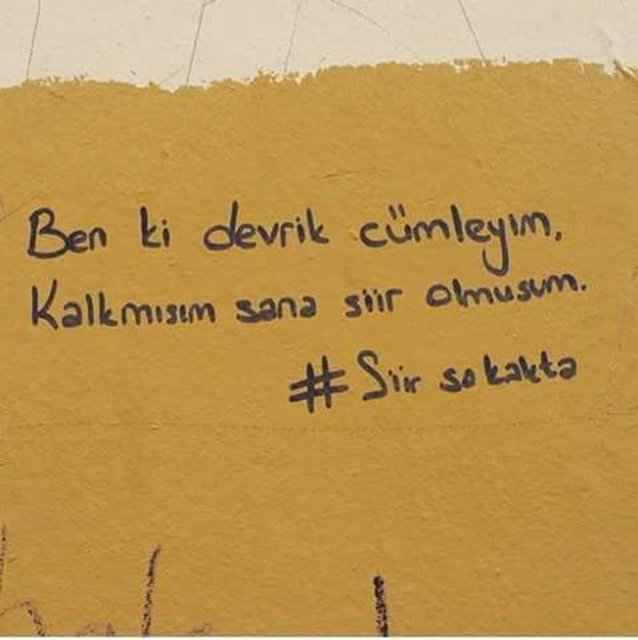 Ben ki devrik cümleyim,
Kalkmısım sana siir olmusum.
#Siir sokakta